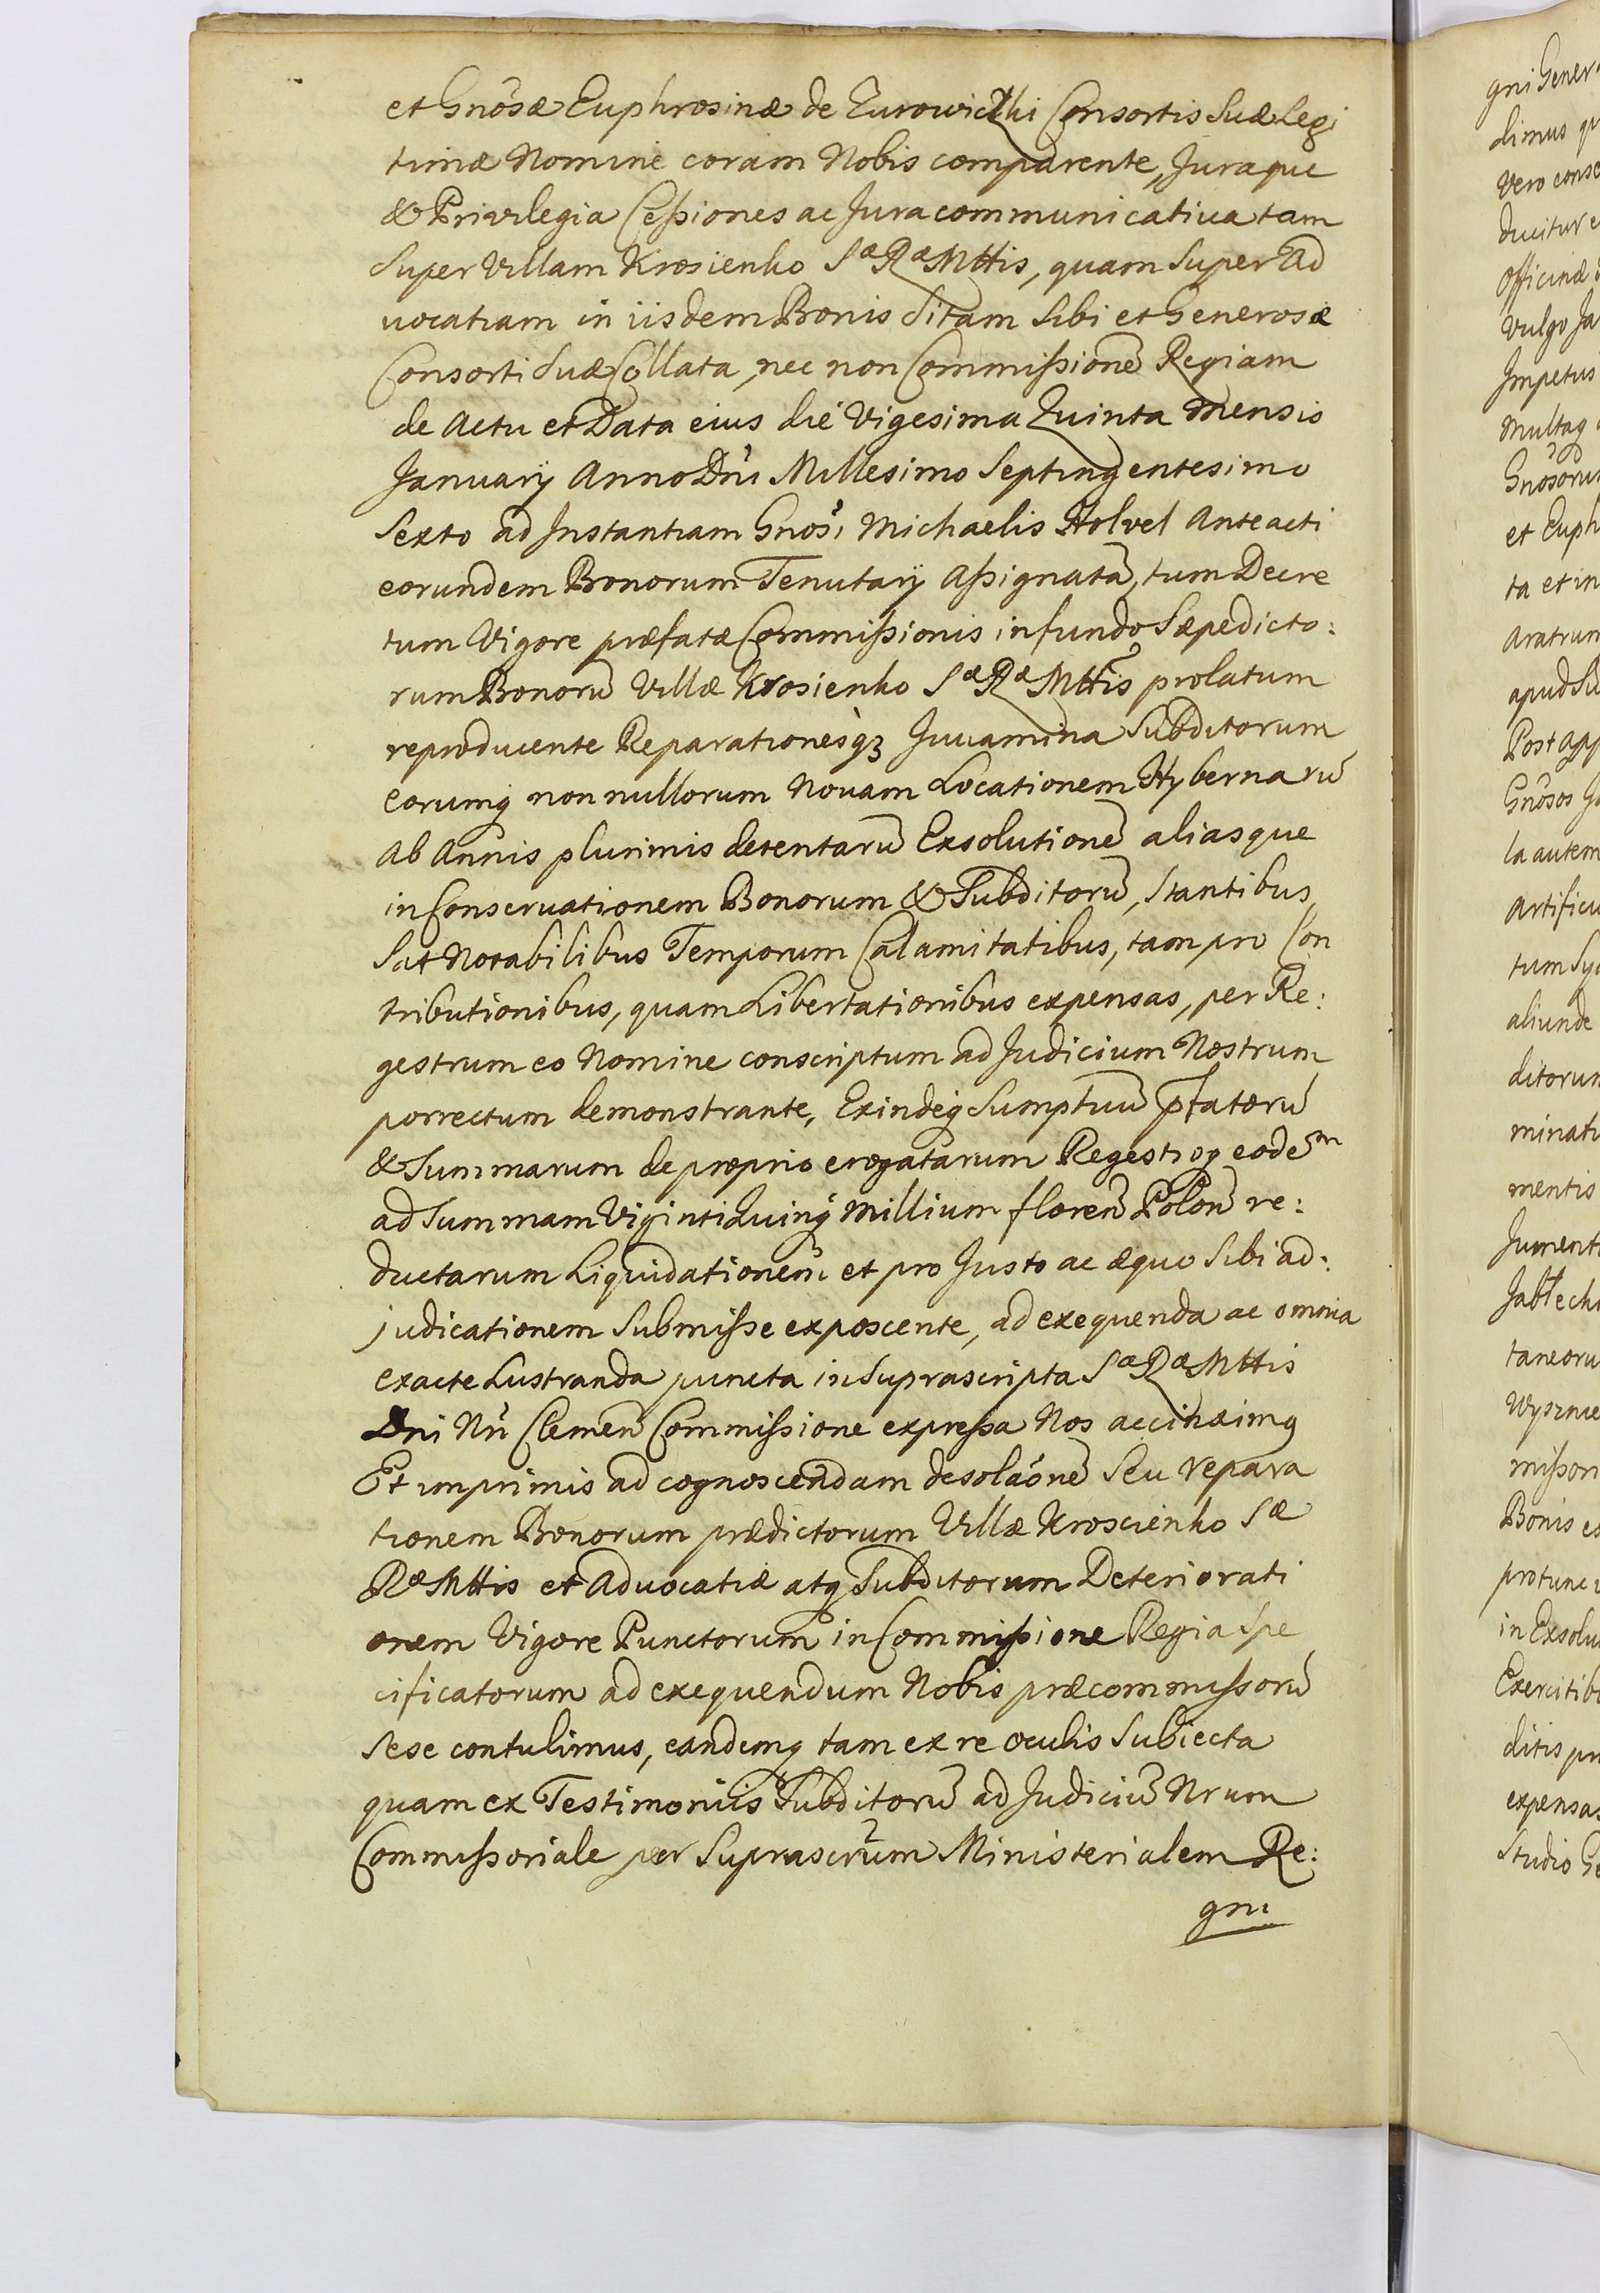 et Gnosæ Euphrosinæ de Zurowickhi Consortis Suæ Legi
timæ Nomine coram Nobis comparente, Juraque
& Privilegia Cessiones ac Jura communicativa tam
Super Villam Krosienko Sæ Ræ Mttis, quam Super Ad
uocatiam in iisdem Bonis Sitam Sibi et Generosæ
Consorti Suæ Collata, nec non Commissionē Regiam
de Actu et Data eius die Vigesima Quinta Mensis
Januarÿ Anno Dni Millesimo Septingentesimo
Sexto ad Instantiam Gnosi Michaelis Holvel Anteacti
eorundem Bonorum Tenutarÿ Assignatā, tum Decre
tum Vigore præfatæ Commissionis in fundo Sæpedicto:
rum Bonorū Villæ Krosienko Sæ Ræ Mttis prolatum
reproducente Reparationesq3 Juuamina Subditorum
eorumq non nullorum Nouam Locationem Hybernarū
ab Annis plurimis detentarū Exsolutionē aliasque
in Conseruationem Bonorum & Subditorū, Stantibus
Sat Notabilibus Temporum Calamitatibus, tam pro Con
tributionibus, quam Libertationibus expensas, per Re:
gestrum eo Nomine conscriptum ad Judicium Nostrum
porrectum demonstrante, Exindeq Sumptuū pfatorū
& Summarum de proprio erogatarum Regestroq eodēm
ad Summam Viginti Quinq Millium florenō Polonō re:
ductarum Liquidationem et pro Justo ac æquo Sibi ad:
judicationem Submisse exposcente, ad exequenda ac omnia
exacte Lustranda puncta in Suprascripta Sæ Ræ Mttis
Dni Nri Clemenō Commissione expressa Nos accinximq
Et imprimis ad cognoscendam desolaónē Seu repara
tionem Bonorum prædictorum Villæ Kroscienko Sæ
Ræ Mttis et Aduocatiæ atq Subditorum Deteriorati
onem Vigore Punctorum in Commissione Regia Spe
cificatorum ad exequendum Nobis præcommissorū
Sese contulimus, eandemq tam ex re oculis Subiecta
quam ex Testimoniis Subditorū ad Judiciū Nrum
Commissoriale per Suprascrtum Ministerialem Re:
gni
gni Gener
dimus qu
Vero conse
ducitur e
Officinæ
Vulgo Ja
Impetus
Multaq
Gnosoru
et Euph
ta et in
Aratrum
apud Su
Post app
Gnosos
la autem
Artificu
tum Sy
aliunde
ditorum
minati
mentis
Jument
Jabłech
taneoru
Wyszne
misson
Bonis es
protunc
in Exsolu
Exercitib
ditis pr
expensas
Studio Ge